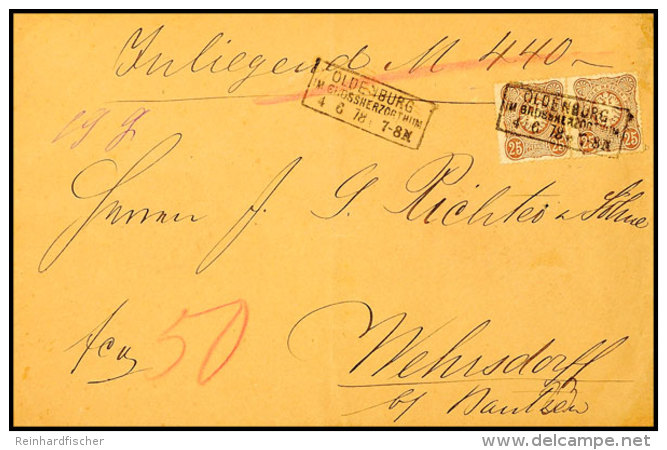 Inliegend M 440-
OLDENBURG
IM GROSSHERZOGTHUM
4 6 78 7-8N
OLDENBURG
IM GROSSHERZOGTHUM
4 6 78 7-8N
25 25
19 g
Herren J. G. Richter & Söhne
fco
50
Wehrsdorf
by Bautzen
Reinhardfischer
delcampe.net